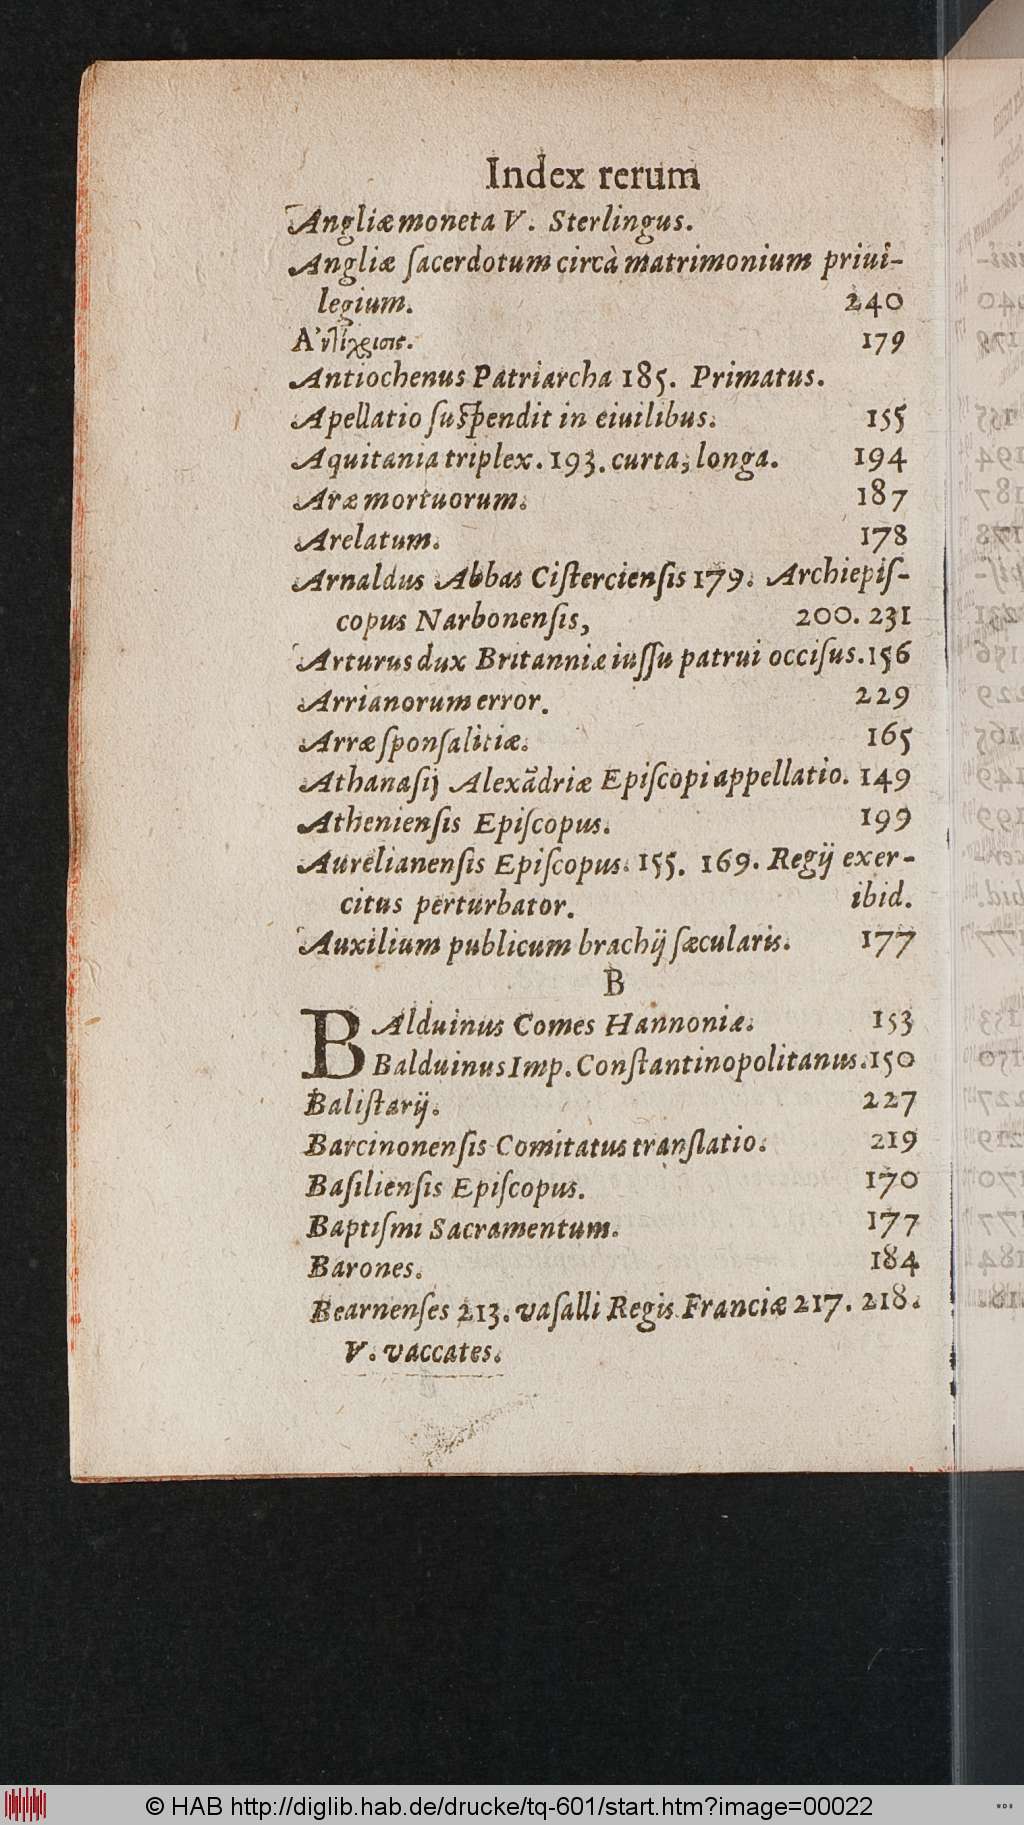 Index rerum
Angliæ moneta V. Sterlingus.
Angliæ ſacerdotum circà matrimonium priui-
legium. 240
179
Antiochenus Patriarcha 185. Primatus.
Apellatio ſuſpendit in eiuilibus. 155
Aquitania triplex. 193. curta, longa. 194
Aræ mortuorum. 187
Arelatum. 178
Arnaldus Abbas Ciſtercienſis 179. Archiepiſ-
copus Narbonenſis, 200. 231
Arturus dux Britanniæ iuſſu patrui occiſus. 156
Arrianorum error. 229
Arræ ſponſalitiæ. 165
Athanaſij Alexãdriæ Epiſcopi appellatio. 149
Athenienſis Epiſcopus. 199
Aurelianenſis Epiſcopus. 155. 169. Regij exer-
citus perturbator. ibid.
Auxilium publicum brachij ſæcularis. 177
B
BAlduinus Comes Hannoniæ. 153
Balduinus Imp. Conſtantinopolitanus. 150
Baliſtarij. 227
Barcinonenſis Comitatus tranſlatio. 219
Baſilienſis Epiſcopus. 170
Baptiſmi Sacramentum. 177
Barones. 184
Bearnenſes 213. vaſalli Regis Franciæ 217. 218.
V. vaccates.
© HAB http://diglib.hab.de/drucke/tq-601/start.htm?image=00022